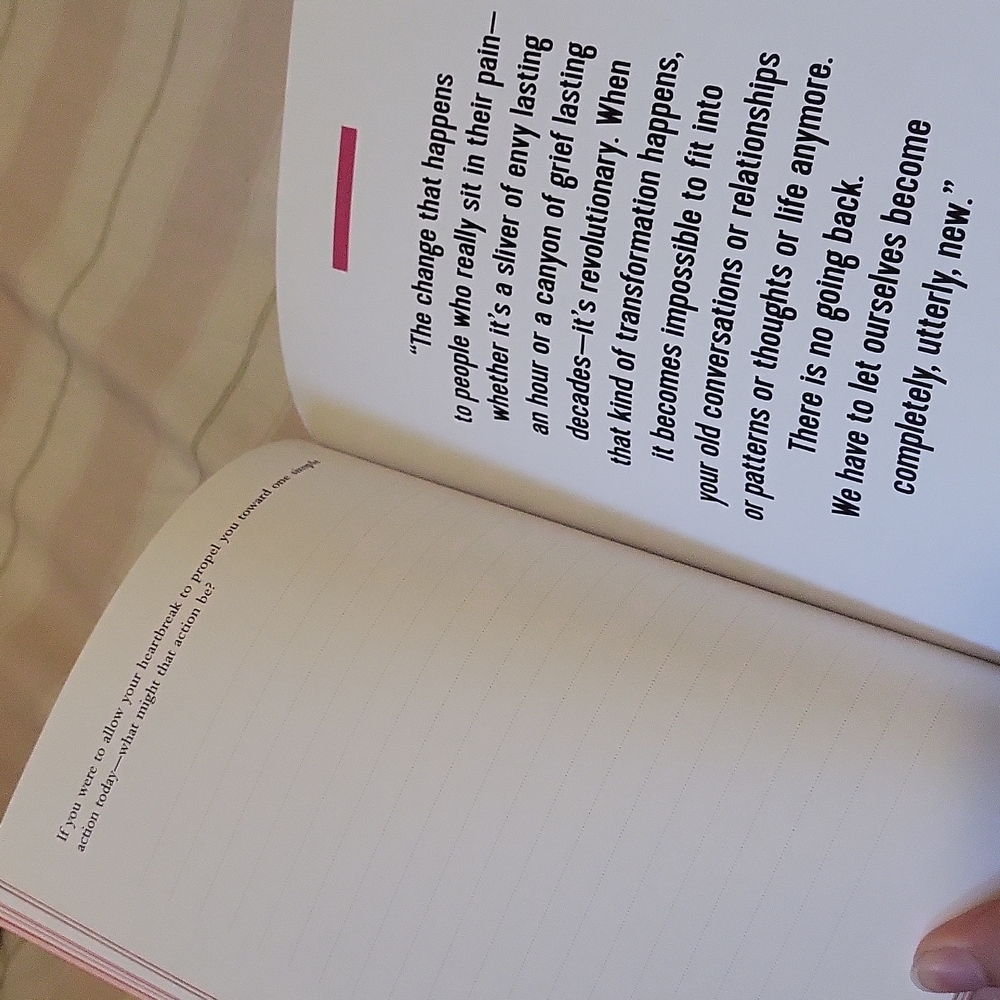 If you were to allow your heartbreak to propel you toward one simple
action today—what might that action be?
“The change that happens
to people who really sit in their pain—
whether it’s a sliver of envy lasting
an hour or a canyon of grief lasting
decades—it’s revolutionary. When
that kind of transformation happens,
it becomes impossible to fit into
your old conversations or relationships
or patterns or thoughts or life anymore.
There is no going back.
We have to let ourselves become
completely, utterly, new.”